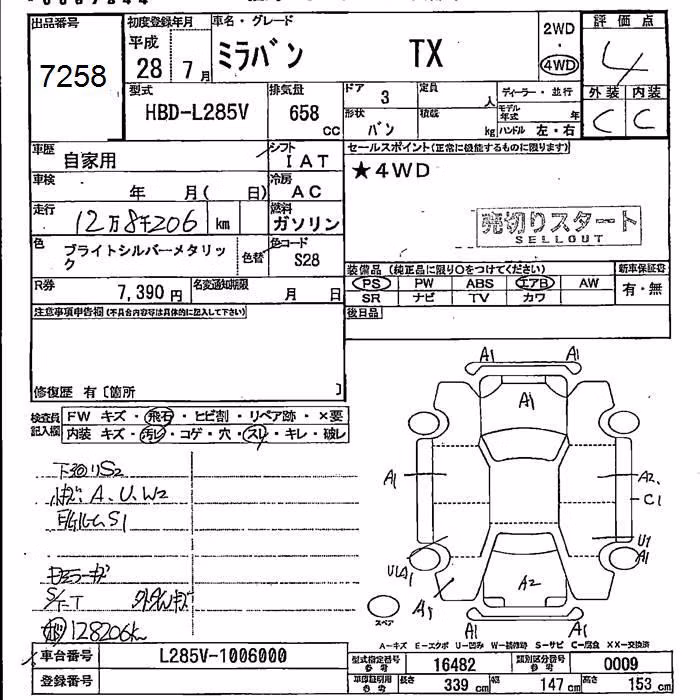 出品番号
7258
初度登録年月
平成
28 7月
車名・グレード
ミラバン TX
2WD
・
4WD
評価点
4
外装 内装
C C
型式
HBD-L285V
排気量
658 cc
ドア 3
形状 バン
定員 人
積載 kg
ディーラー・並行
モデル年式 年
ハンドル 左・右
車歴 自家用
シフト IAT
車検 年 月( 日)
冷房 AC
走行 12万8千206 km
燃料 ガソリン
色 ブライトシルバーメタリック
色替
色コード S28
R券 7,390 円
名変通知期限 月 日
セールスポイント(正常に機能するものに限ります)
★4WD
売切りスタート
SELLOUT
装備品 (純正品に限り○をつけてください)
PS PW ABS エアB AW
SR ナビ TV カワ
新車保証書
有・無
後日品
注意事項申告欄(不具合内容等は具体的に記入して下さい)
修復歴 有〔箇所 〕
検査員記入欄
FW キズ・飛石・ヒビ割・リペア跡・×要
内装 キズ・汚レ・コゲ・穴・スレ・キレ・破レ
下廻りS2
A、U、W2
S1
128206k
A1 A1
A1
A1 A2、
C1
U1
A1
U1A1
A1
A2
A1 A1
スペア
A-キズ E-エクボ U-凹み W-補修跡 S-サビ C-腐食 XX-交換済
車台番号 L285V-1006000
登録番号
型式指定番号 参考 16482
類別区分番号 参考 0009
車庫証明用 参考 長さ 339 cm 幅 147 cm 高さ 153 cm